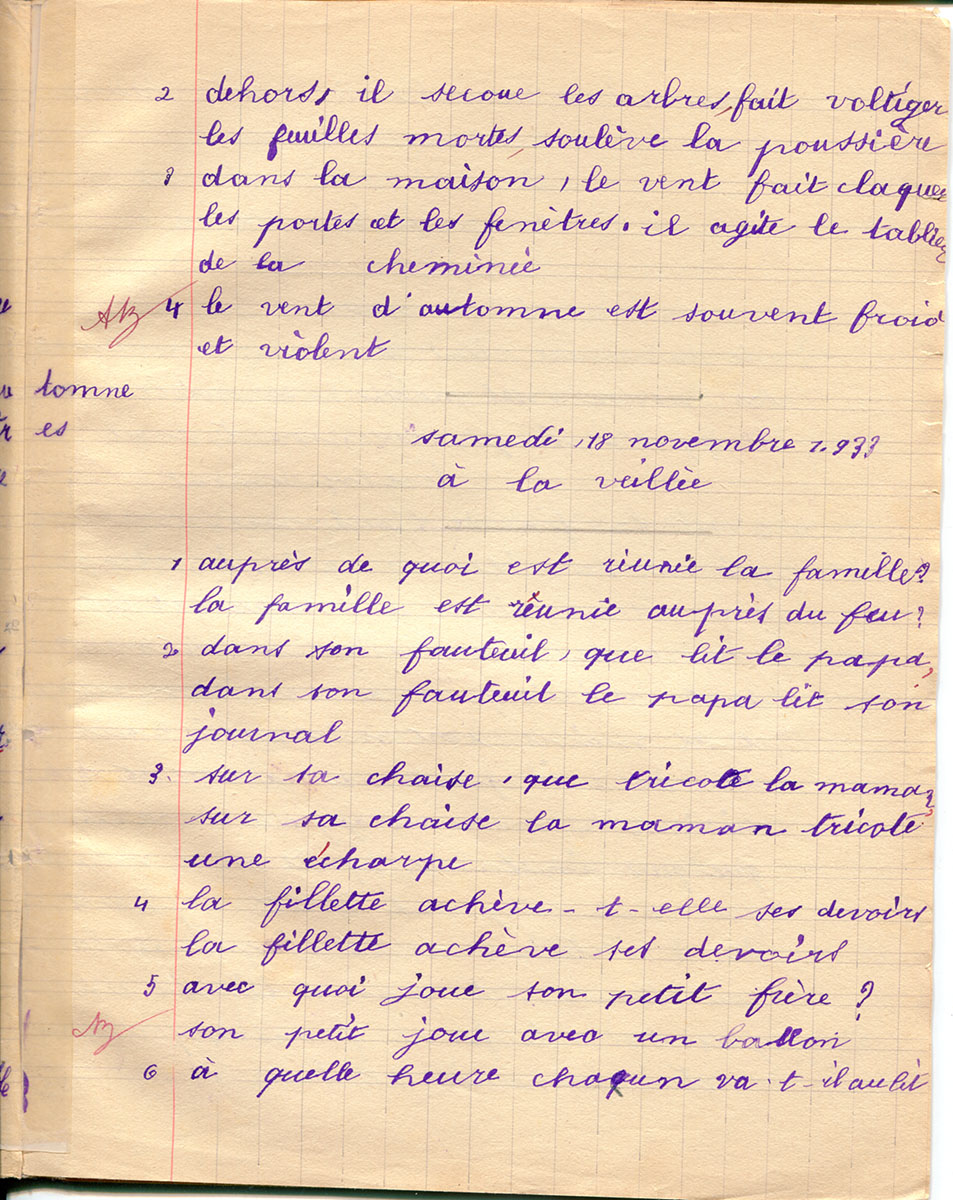 2 dehors, il secoue les arbres, fait voltiger
les feuilles mortes, soulève la poussière
3 dans la maison, le vent fait claquer
les portes et les fenêtres. il agite le tablier
de la cheminée
4 le vent d'automne est souvent froid
et violent
tomne
es
samedi, 18 novembre 1.933
à la veillée
1 auprès de quoi est réunie la famille?
la famille est réunie auprès du feu?
2. dans son fauteuil, que lit le papa,
dans son fauteuil le papa lit son
journal
3. sur sa chaise, que tricote la maman,
sur sa chaise la maman tricote
une écharpe
4 la fillette achève-t-elle ses devoirs
la fillette achève ses devoirs
5 avec quoi joue son petit frère?
son petit joue avec un ballon
6 à quelle heure chaqun va-t-il au lit